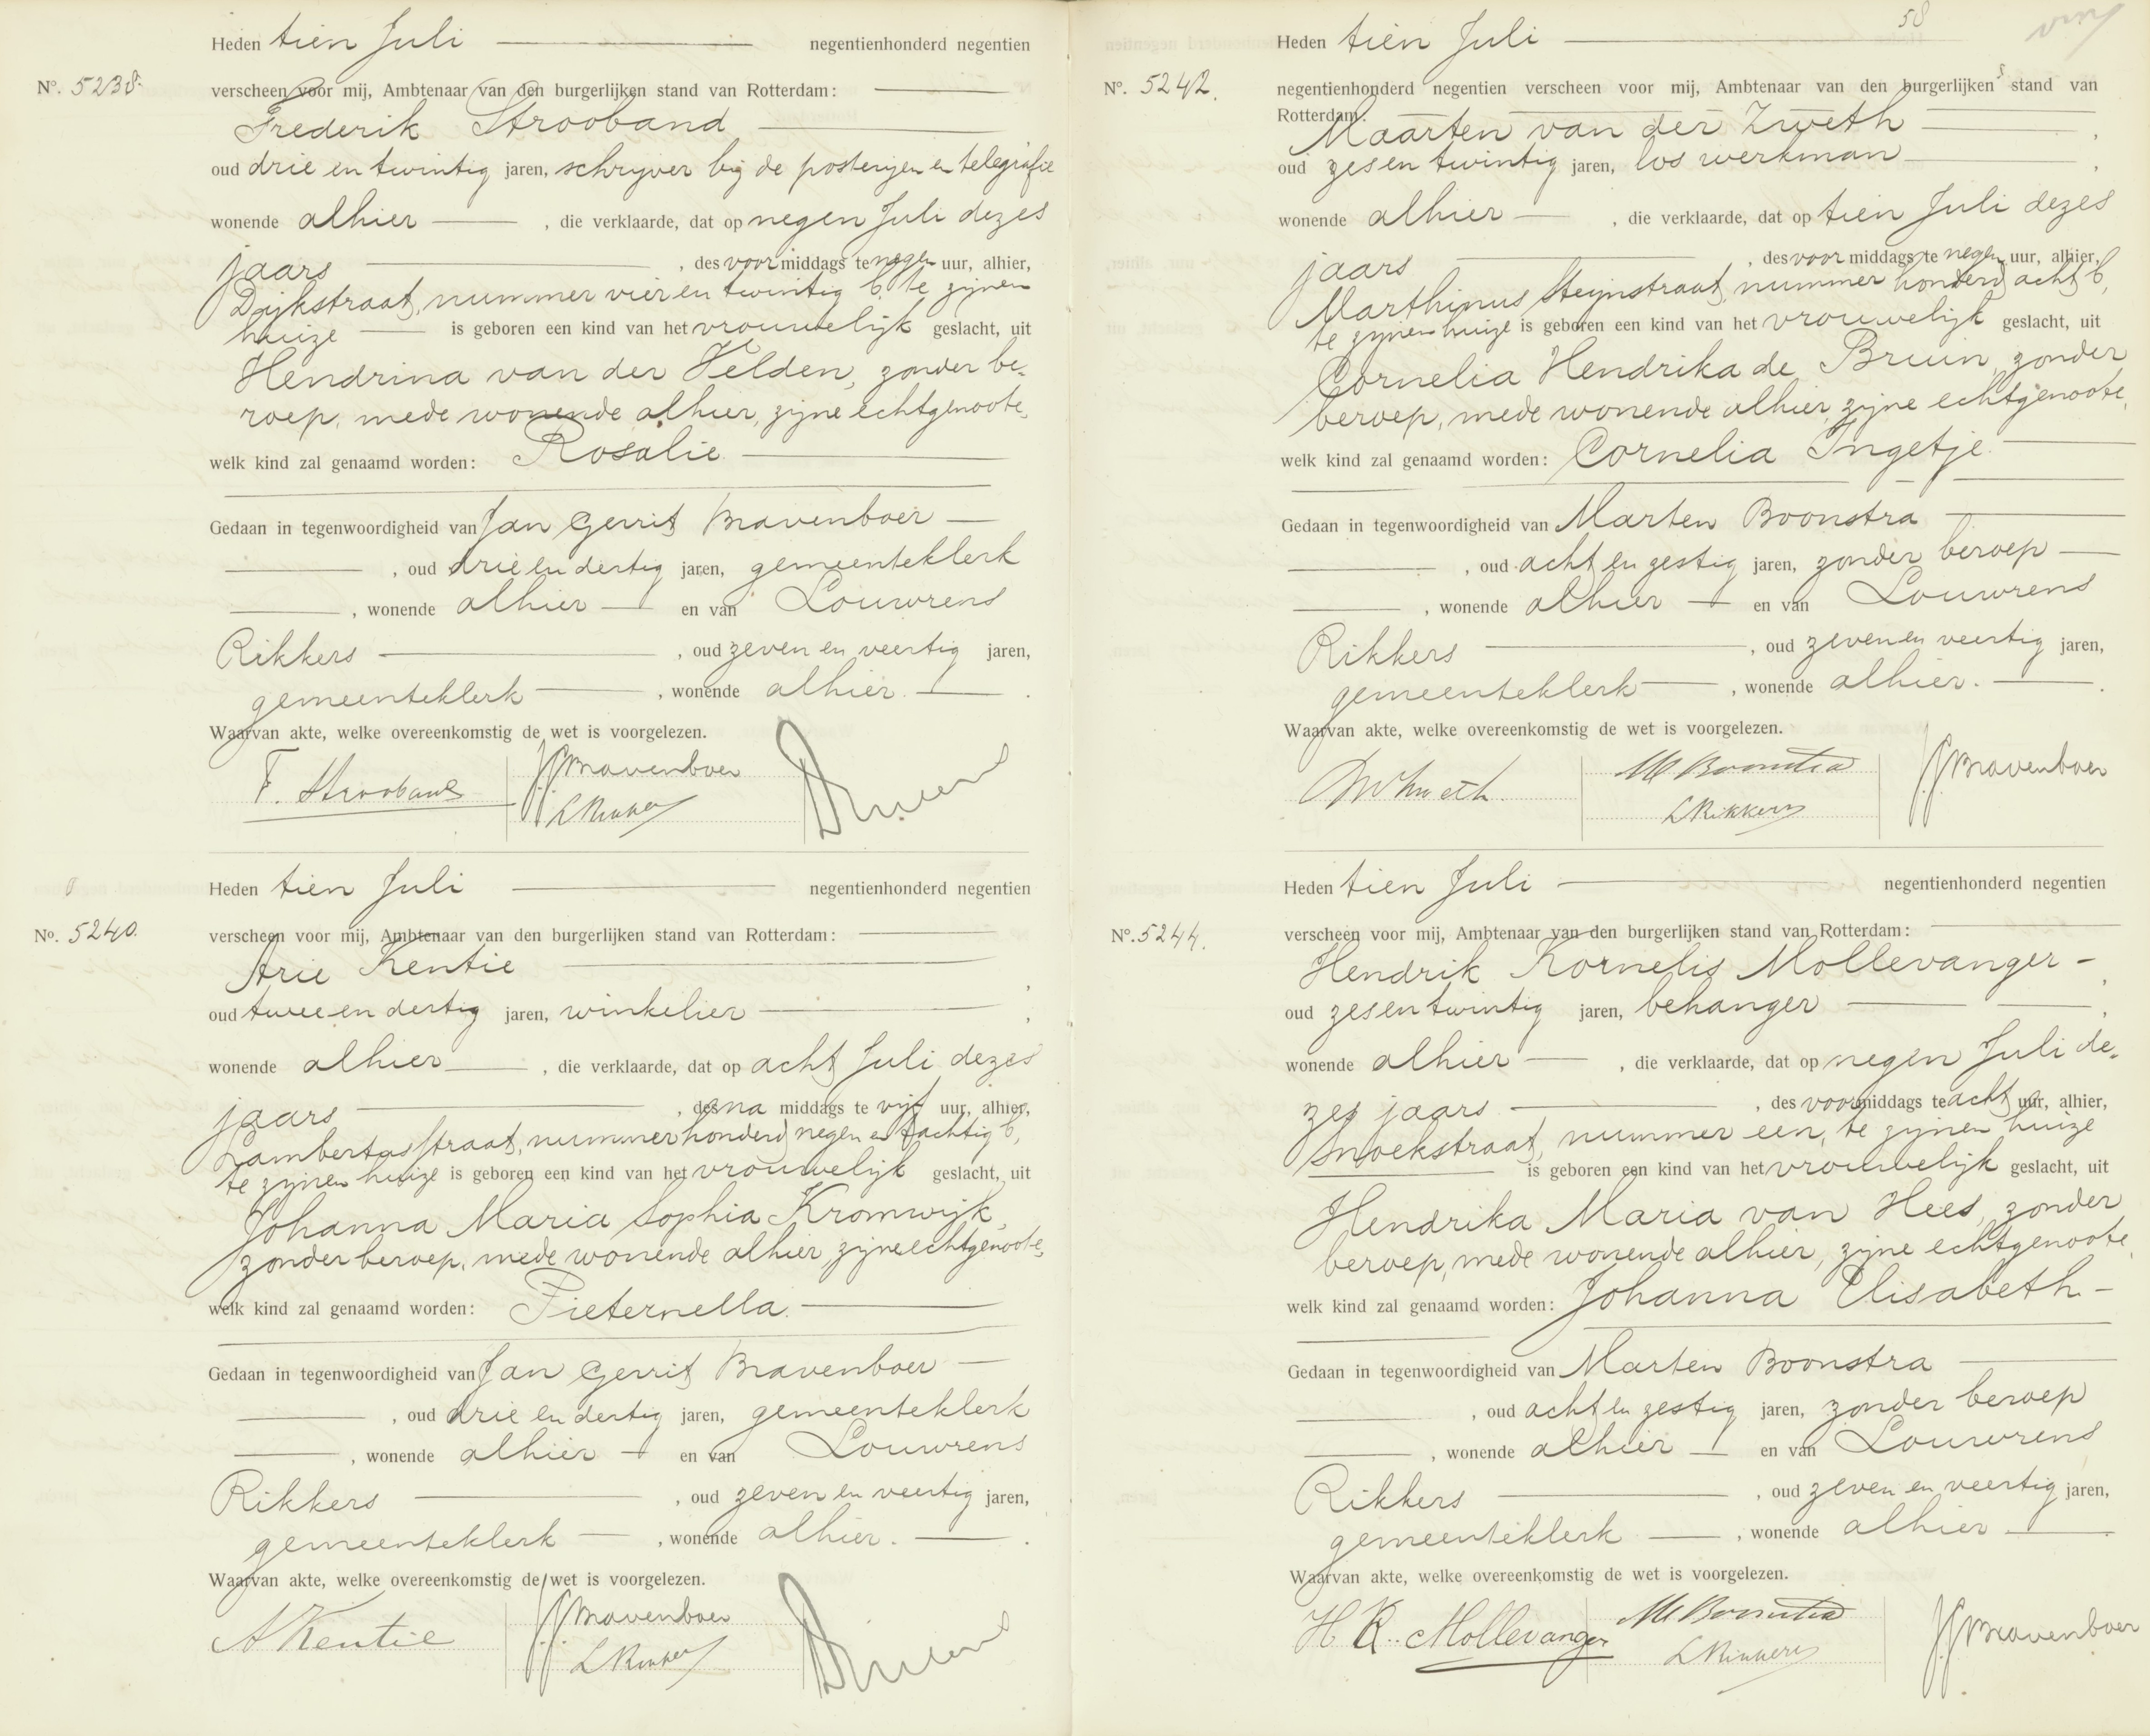 Heden tien Juli negentienhonderd negentien
No. 5238.
verscheen voor mij, Ambtenaar van den burgerlijken stand van Rotterdam:
Frederik Strooband
oud drie en twintig jaren, schrijver bij de posterijen en telegrafie
wonende alhier, die verklaarde, dat op negen Juli dezes
jaars, des voormiddags te negen uur, alhier,
Dijkstraat, nummer vier en twintig b, te zijnen
huize is geboren een kind van het vrouwelijk geslacht, uit
Hendrina van der Velden, zonder be-
roep, mede wonende alhier, zijne echtgenoote,
welk kind zal genaamd worden: Rosalie
Gedaan in tegenwoordigheid van Jan Gerrit Bravenboer
, oud drie en dertig jaren, gemeenteklerk
, wonende alhier en van Louwrens
Rikkers, oud zeven en veertig jaren,
gemeenteklerk, wonende alhier.
Waarvan akte, welke overeenkomstig de wet is voorgelezen.
F. Strooband JGBravenboer
LRikkers
Heden tien Juli negentienhonderd negentien
No. 5240.
verscheen voor mij, Ambtenaar van den burgerlijken stand van Rotterdam:
Arie Kentie
oud twee en dertig jaren, winkelier,
wonende alhier, die verklaarde, dat op acht Juli dezes
jaars, des na middags te vijf uur, alhier,
Lambertusstraat, nummer honderd negen en tachtig b,
te zijnen huize is geboren een kind van het vrouwelijk geslacht, uit
Johanna Maria Sophia Kromwijk,
zonder beroep, mede wonende alhier, zijne echtgenoote,
welk kind zal genaamd worden: Pieternella.
Gedaan in tegenwoordigheid van Jan Gerrit Bravenboer
, oud drie en dertig jaren, gemeenteklerk
, wonende alhier en van Louwrens
Rikkers, oud zeven en veertig jaren,
gemeenteklerk, wonende alhier.
Waarvan akte, welke overeenkomstig de wet is voorgelezen.
A Kentie JGBravenboer
LRikkers
58
Heden tien Juli
No. 5242.
negentienhonderd negentien verscheen voor mij, Ambtenaar van den burgerlijken stand van
Rotterdam:
Maarten van der Zweth,
oud zes en twintig jaren, los werkman,
wonende alhier, die verklaarde, dat op tien Juli dezes
jaars, des voormiddags te negen uur, alhier,
Marthinus Steijnstraat, nummer honderd acht b,
te zijnen huize is geboren een kind van het vrouwelijk geslacht, uit
Cornelia Hendrika de Bruin, zonder
beroep, mede wonende alhier, zijne echtgenoote,
welk kind zal genaamd worden: Cornelia Ingetje.
Gedaan in tegenwoordigheid van Marten Boonstra
, oud acht en zestig jaren, zonder beroep
, wonende alhier en van Louwrens
Rikkers, oud zeven en veertig jaren,
gemeenteklerk, wonende alhier.
Waarvan akte, welke overeenkomstig de wet is voorgelezen.
M Boonstra JGBravenboer
LRikkers
Heden tien Juli negentienhonderd negentien
No. 5244.
verscheen voor mij, Ambtenaar van den burgerlijken stand van Rotterdam:
Hendrik Kornelis Mollevanger,
oud zes en twintig jaren, behanger,
wonende alhier, die verklaarde, dat op negen Juli de-
zes jaars, des voormiddags te acht uur, alhier,
Snoekstraat, nummer een, te zijnen huize
is geboren een kind van het vrouwelijk geslacht, uit
Hendrika Maria van Hees, zonder
beroep, mede wonende alhier, zijne echtgenoote,
welk kind zal genaamd worden: Johanna Elisabeth
Gedaan in tegenwoordigheid van Marten Boonstra
, oud acht en zestig jaren, zonder beroep
, wonende alhier en van Louwrens
Rikkers, oud zeven en veertig jaren,
gemeenteklerk, wonende alhier.
Waarvan akte, welke overeenkomstig de wet is voorgelezen.
H K. Mollevanger M Boonstra JGBravenboer
LRikkers